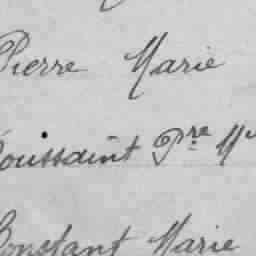 Pierre Marie
Toussaint Pre M
Constant Marie